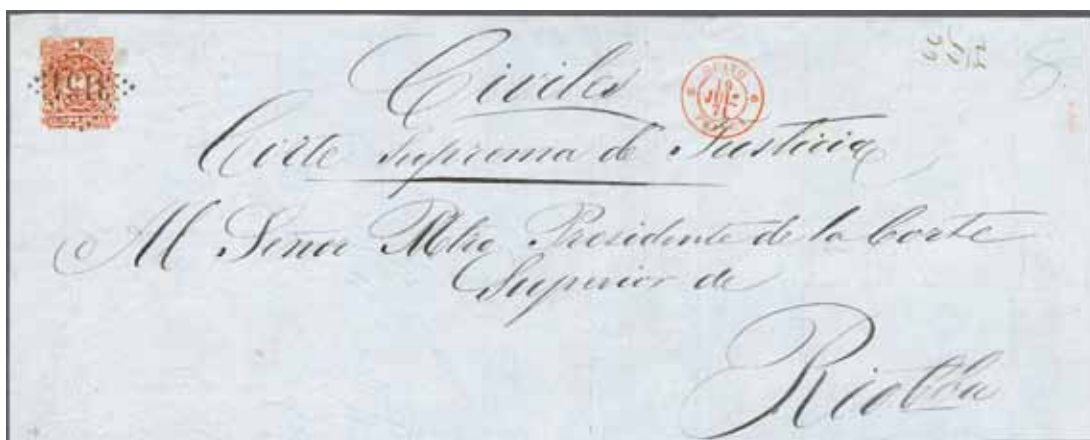 Civiles
Corte Suprema de Justicia
Al Señor Mtro Presidente de la Corte
Superior de
Riobba
QUITO